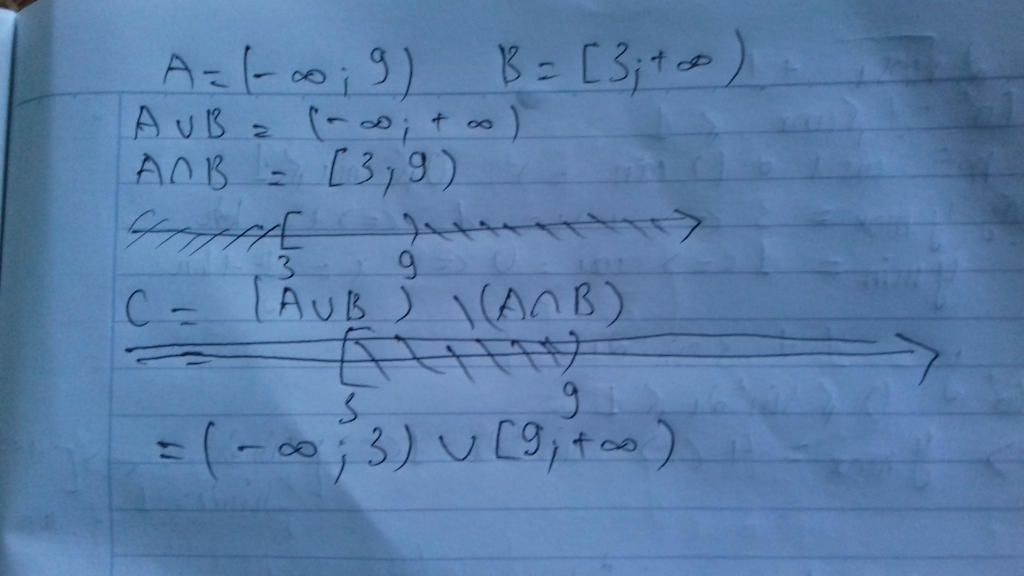 A = (-∞; 9) B = [3; +∞)
A∪B = (-∞; +∞)
A∩B = [3; 9)
3 9
C = (A∪B) \ (A∩B)
=
3 9
= (-∞; 3) ∪ [9; +∞)